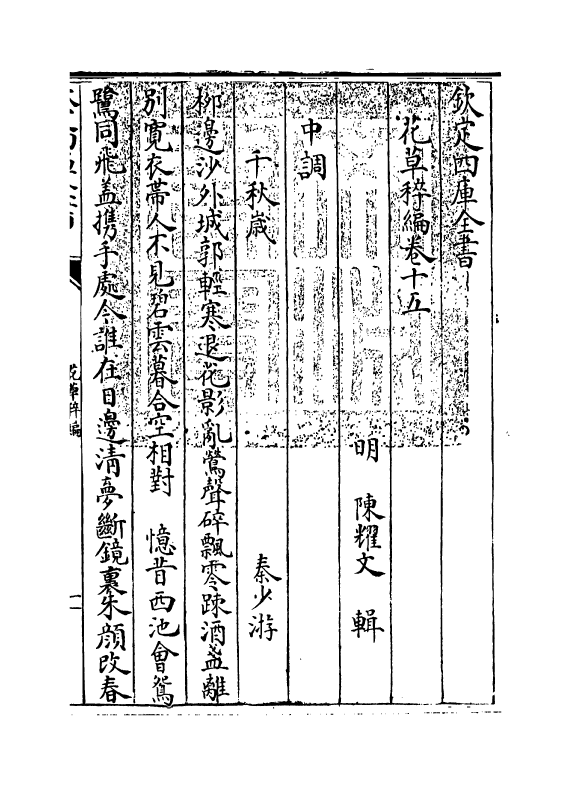 欽定四庫全書
花草稡編卷十五
明 陳耀文 輯
中調
千秋歲 秦少游
栁邊沙外城郭輕寒退花影亂鶯聲碎飄零踈酒盞離
別寛衣帶人不見碧雲暮合空相對 憶昔西池會鴛
鷺同飛盖携手處今誰在日邊清夢斷鏡裏朱顔改春
花草稡編